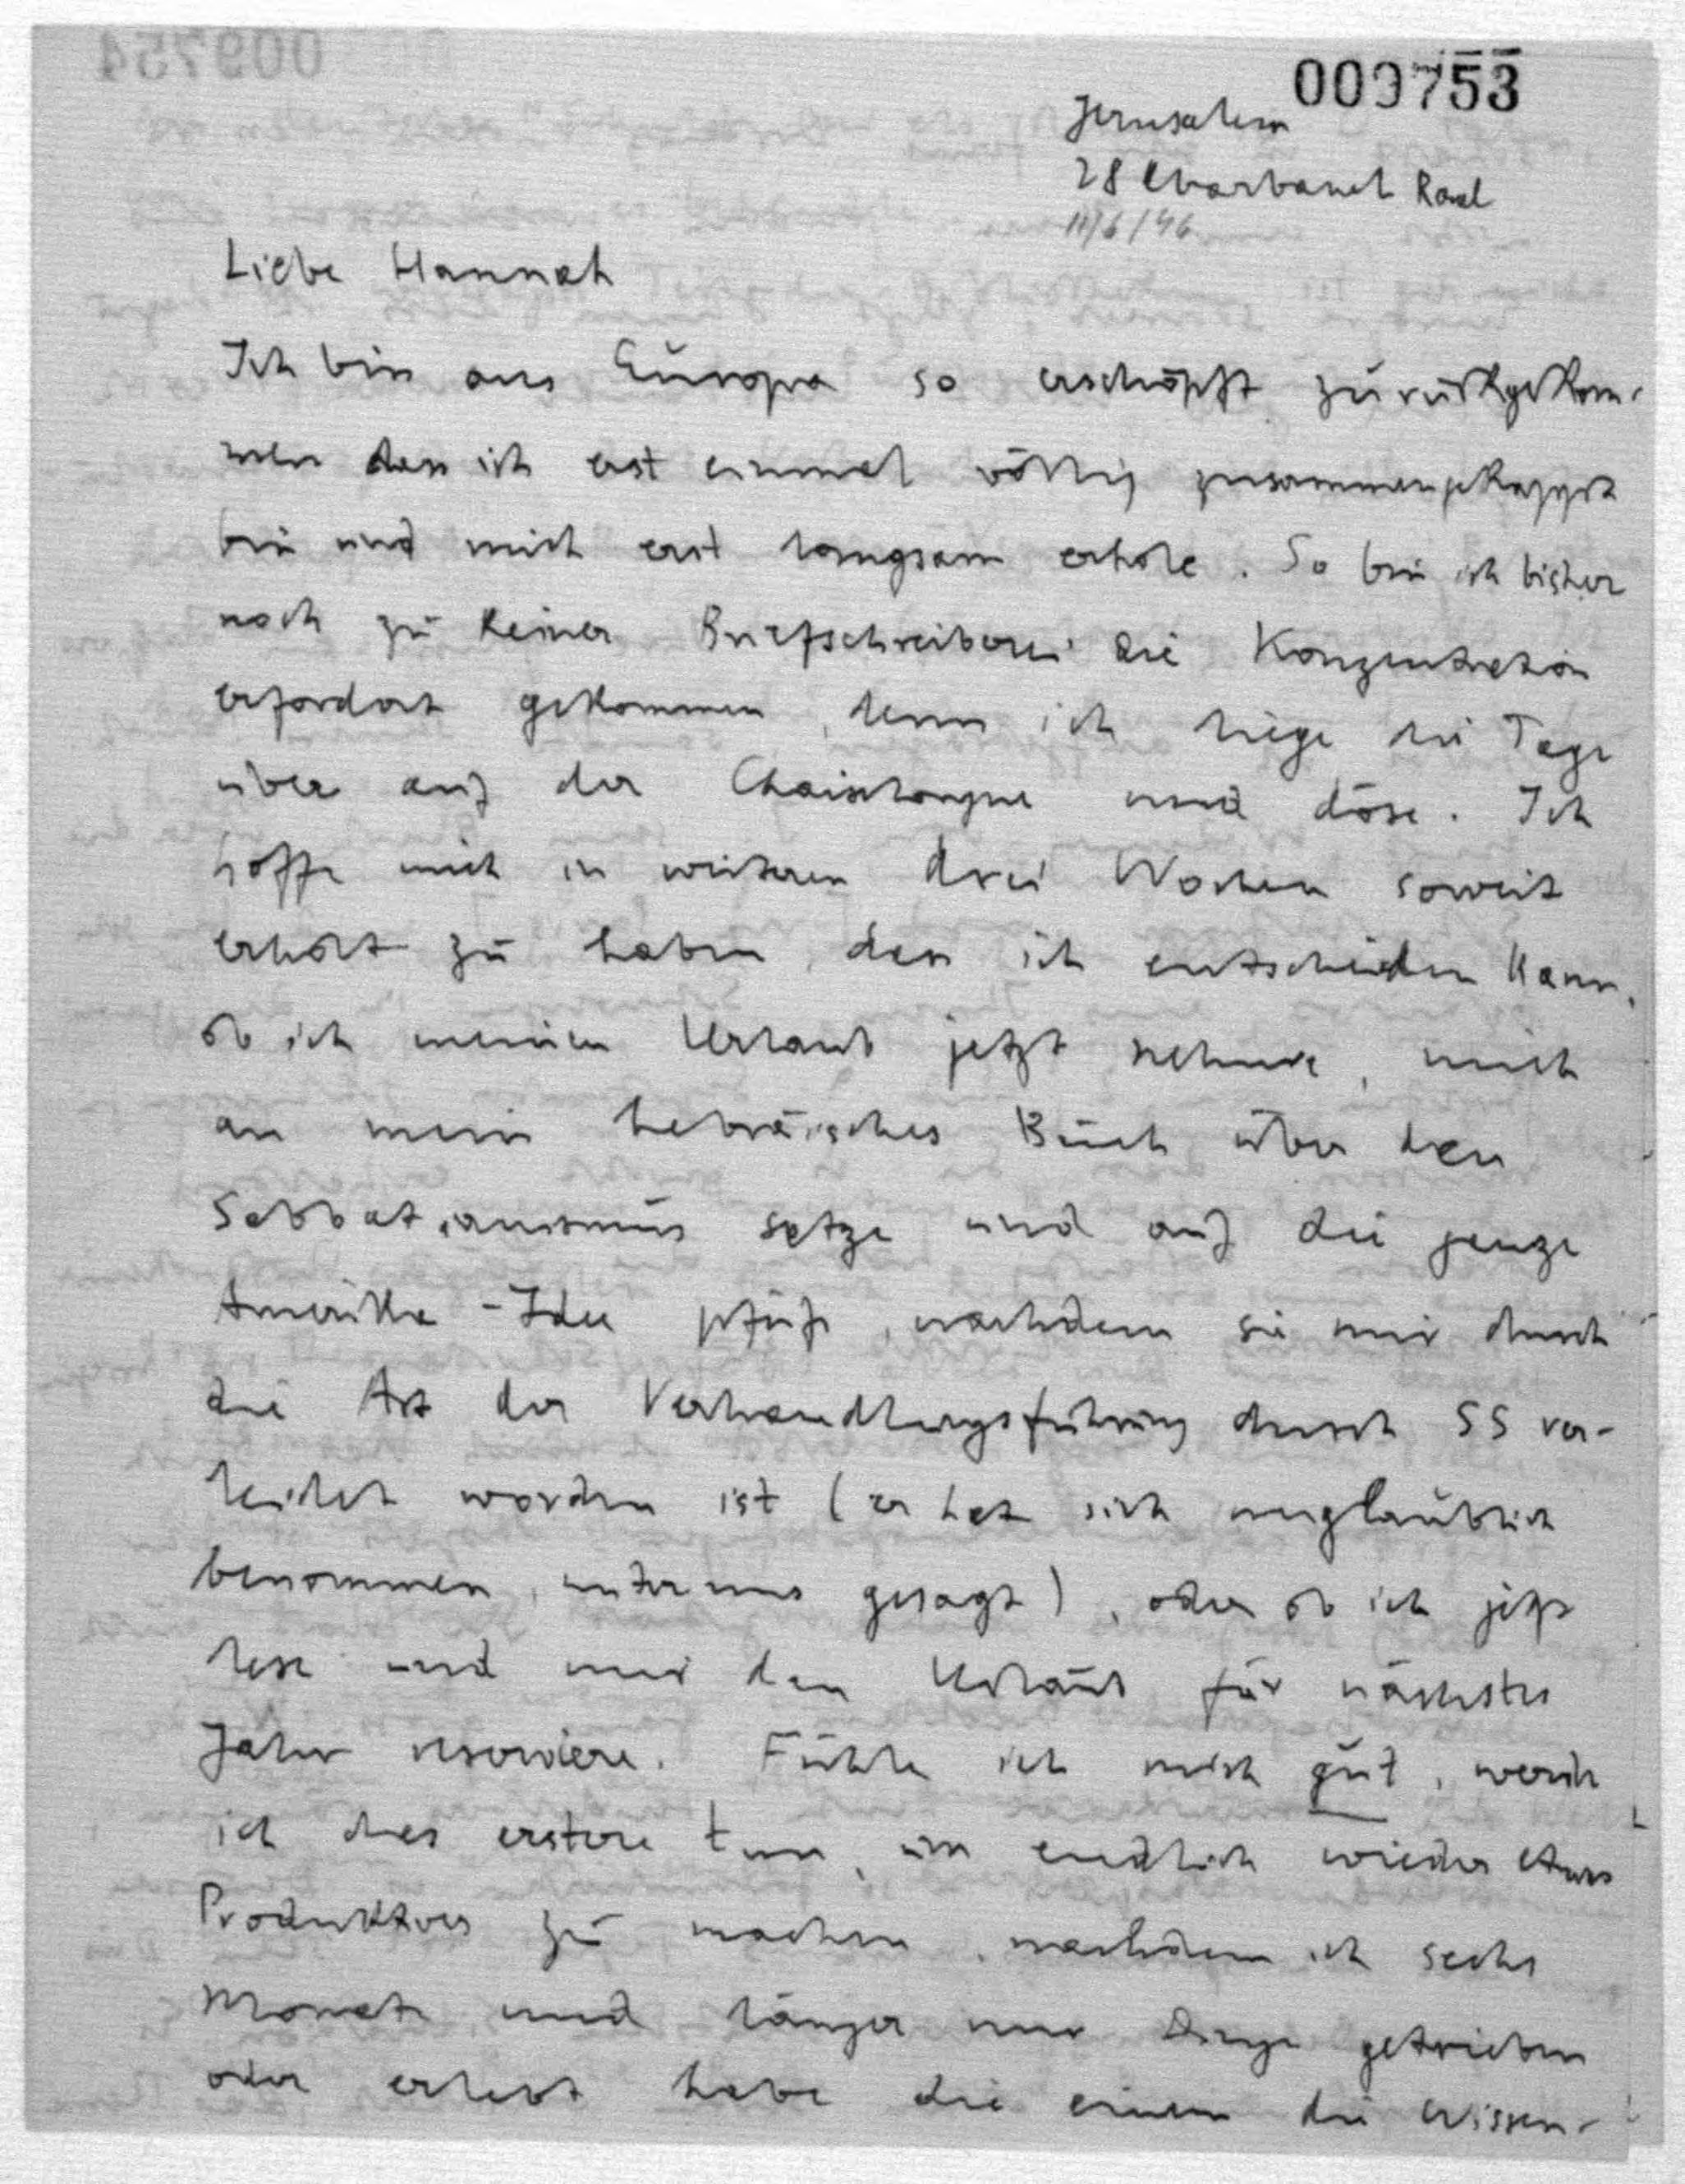 009754
009753
Jerusalem
28 Abarbanel Road
11/6/46
Liebe Hannah
Ich bin aus Europa so erschöpft zurückgekom-
men dass ich erst einmal völlig zusammengeklappt
bin und mich erst langsam erhole. So bin ich bisher
noch zu keiner Briefschreiberei die Konzentration
erfordert gekommen, denn ich liege die Tage
über auf der Chaiselongue und döse. Ich
hoffe mich in weiteren drei Wochen soweit
erholt zu haben, dass ich entscheiden kann,
ob ich meinen Urlaub jetzt nehme, mich
an mein hebräisches Buch über den
Sabbatianismus setze und auf die ganze
Amerika-Idee pfeife, nachdem sie mir durch
die Art der Verhandlungsführung durch SS ver-
leidet worden ist (er hat sich unglaublich
benommen, unter uns gesagt), oder ob ich jetzt
lese und mir den Urlaub für nächstes
Jahr reserviere. Fühle ich mich gut, werde
ich das erstere tun, um endlich wieder etwas
Produktives zu machen, nachdem ich sechs
Monate und länger nur Dinge getrieben
oder erlebt habe die einem die Wissen-